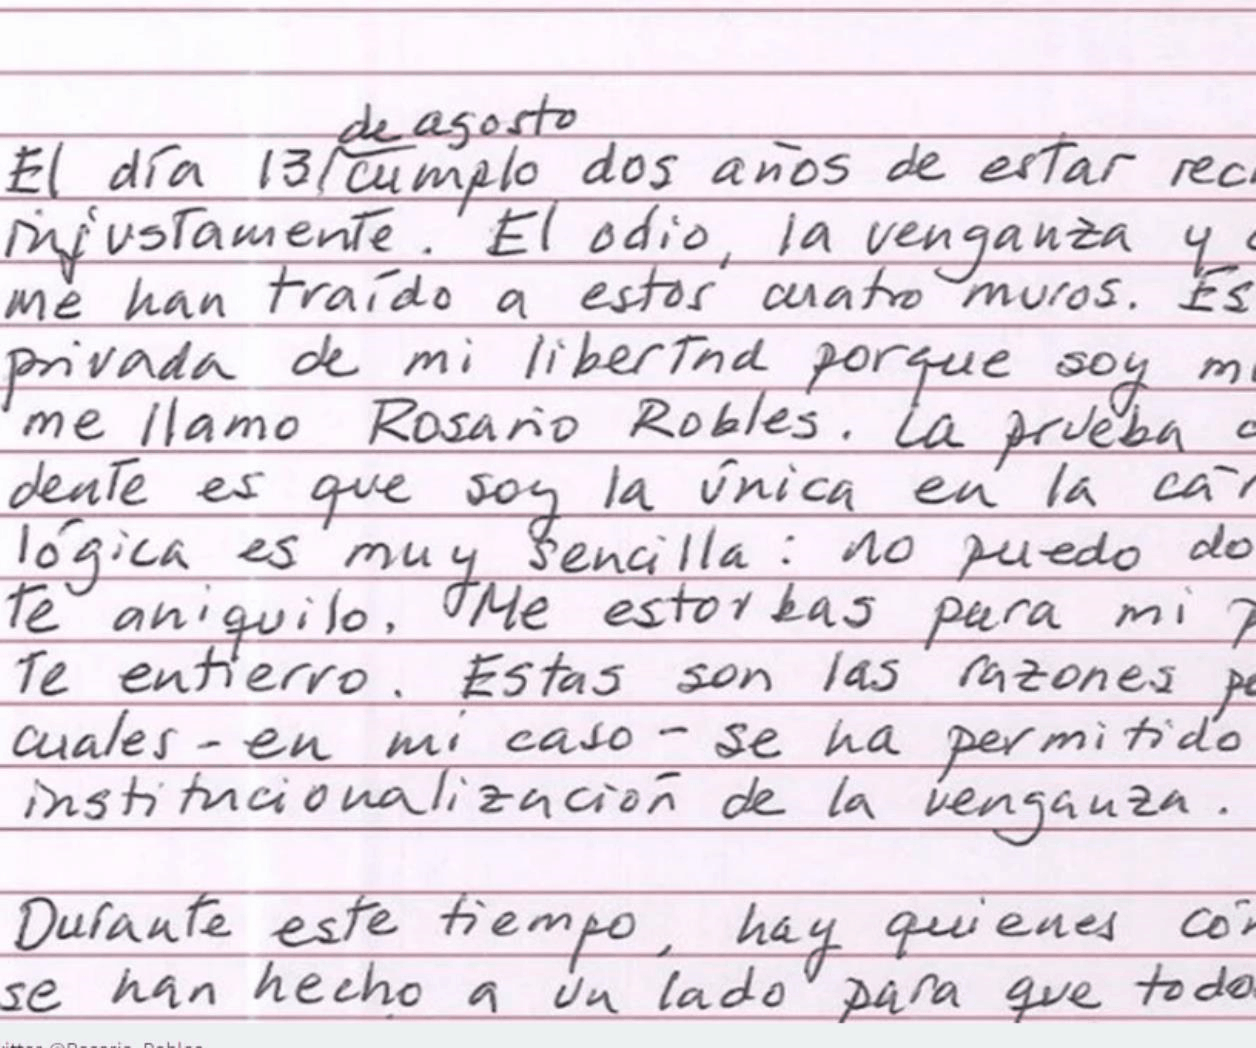 de agosto
El día 13/cumplo dos años de estar rec
injustamente. El odio, la venganza y
me han traído a estos cuatro muros. Es
privada de mi libertad porque soy m
me llamo Rosario Robles. La prueba
dente es que soy la única en la cár
lógica es muy sencilla: no puedo do
te aniquilo. Me estorbas para mi p
te entierro. Estas son las razones po
cuales - en mi caso - se ha permitido
institucionalización de la venganza.
Durante este tiempo, hay quienes con
se han hecho a un lado para que todo